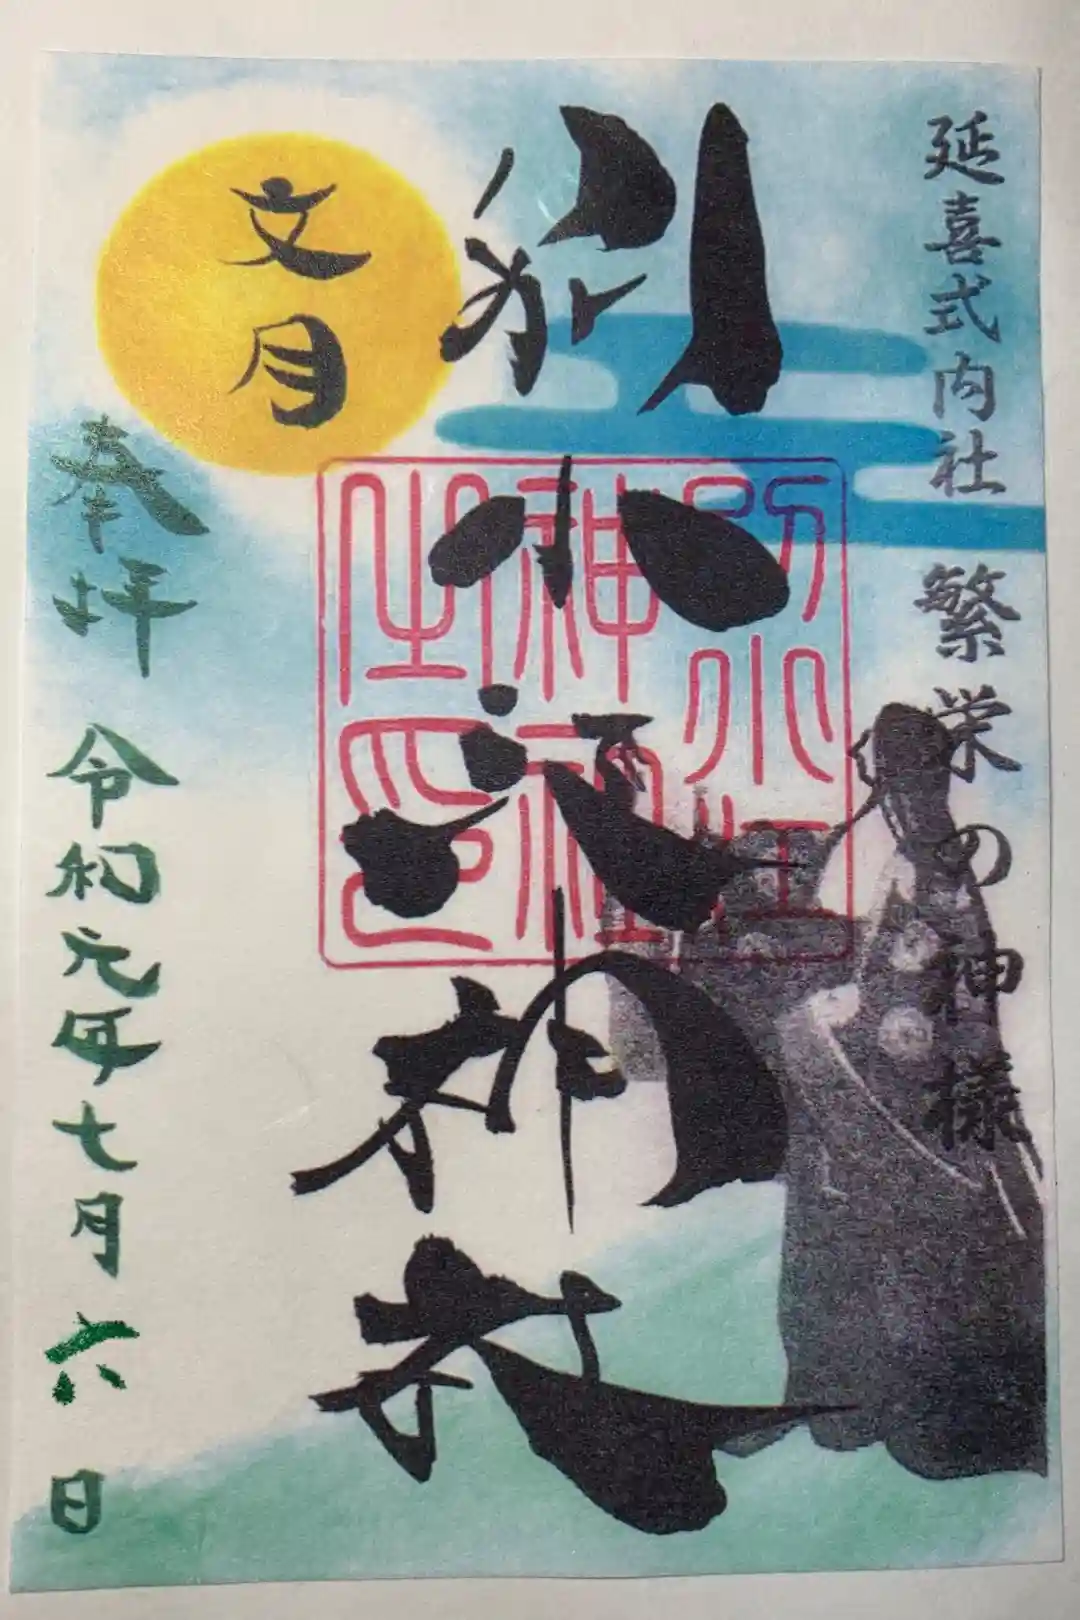 延喜式内社 繁栄の神様
別小江神社
別小江
神社
之印
文月
奉拝 令和元年七月六日